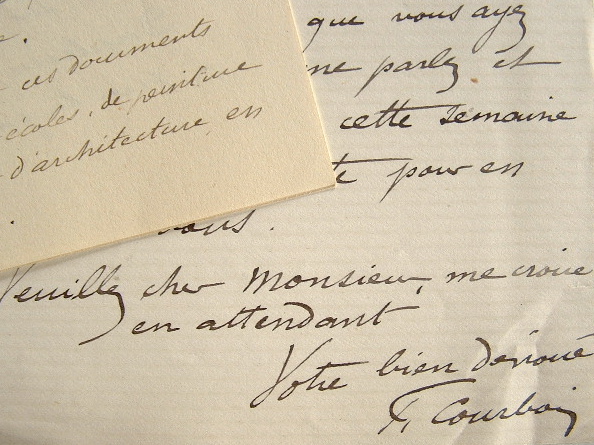 ces documents
écoles, de peinture
d'architecture, en
que vous ayez
me parlez et
cette semaine
pour en
vous.
Veuillez cher Monsieur, me croire
en attendant
Votre bien dévoué
F. Courboin